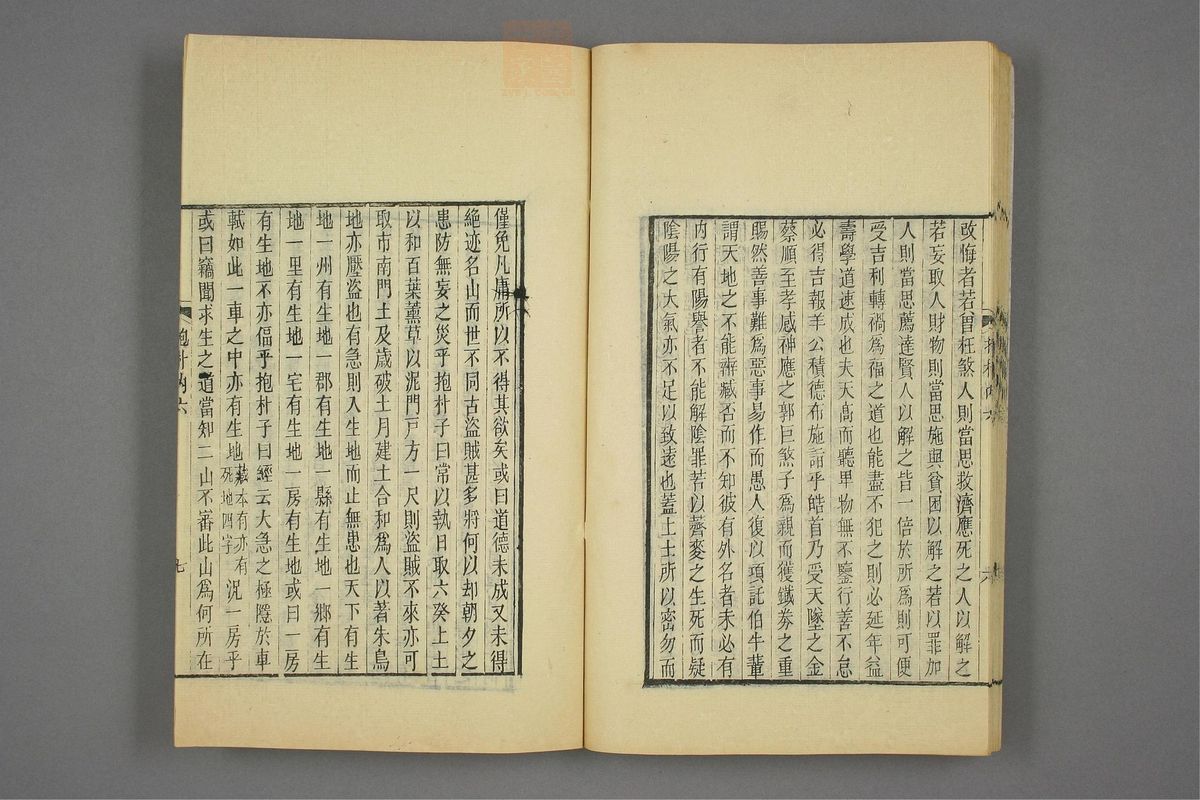 改悔者若曾枉煞人則當思救濟應死之人以解之
若妄取人財物則當思施與貧困以解之若以罪加
人則當思薦達賢人以解之皆一倍於所爲則可便
受吉利轉禍爲福之道也能盡不犯之則必延年益
壽學道速成也夫天高而聽卑物無不鑒行善不怠
必得吉報羊公積德布施詣乎皓首乃受天墜之金
蔡順至孝感神應之郭巨煞子爲親而獲鐵劵之重
賜然善事難爲惡事易作而愚人復以項託伯牛輩
謂天地之不能辨臧否而不知彼有外名者未必有
内行有陽譽者不能解陰罪若以薺麥之生死而疑
陰陽之大氣亦不足以致遠也蓋上士所以密勿而
僅免凡庸所以不得其欲矣或曰道德未成又未得
絶迹名山而世不同古盜賊甚多將何以却朝夕之
患防無妄之災乎抱朴子曰常以執日取六癸上土
以和百葉薰草以泥門戸方一尺則盜賊不來亦可
取市南門土及歲破土月建土合和爲人以著朱鳥
地亦壓盜也有急則入生地而止無患也天下有生
地一州有生地一郡有生地一縣有生地一鄉有生
地一里有生地一宅有生地一房有生地或曰一房
有生地不亦偪乎抱朴子曰經云大急之極隱於車
軾如此一車之中亦有生地藏本有亦有死地四字況一房乎
或曰竊聞求生之道當知二山不審此山爲何所在
抱朴内六
七